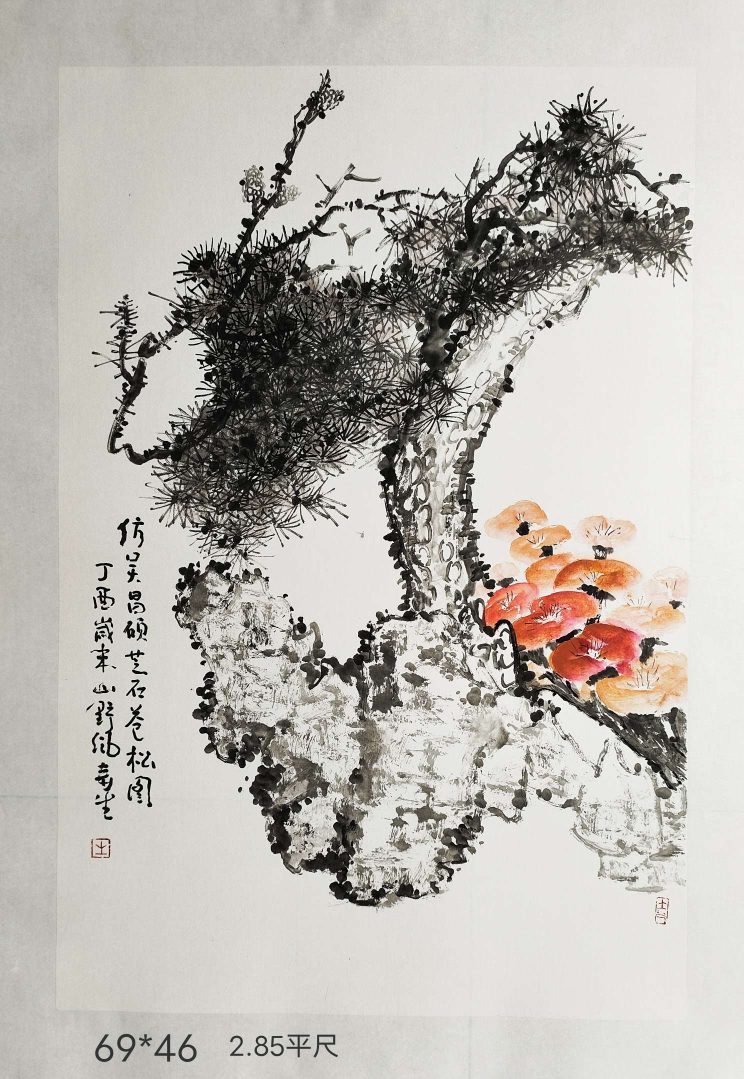 仿吴昌硕芝石苍松图
丁酉歲末山野生
69*46 2.85平尺